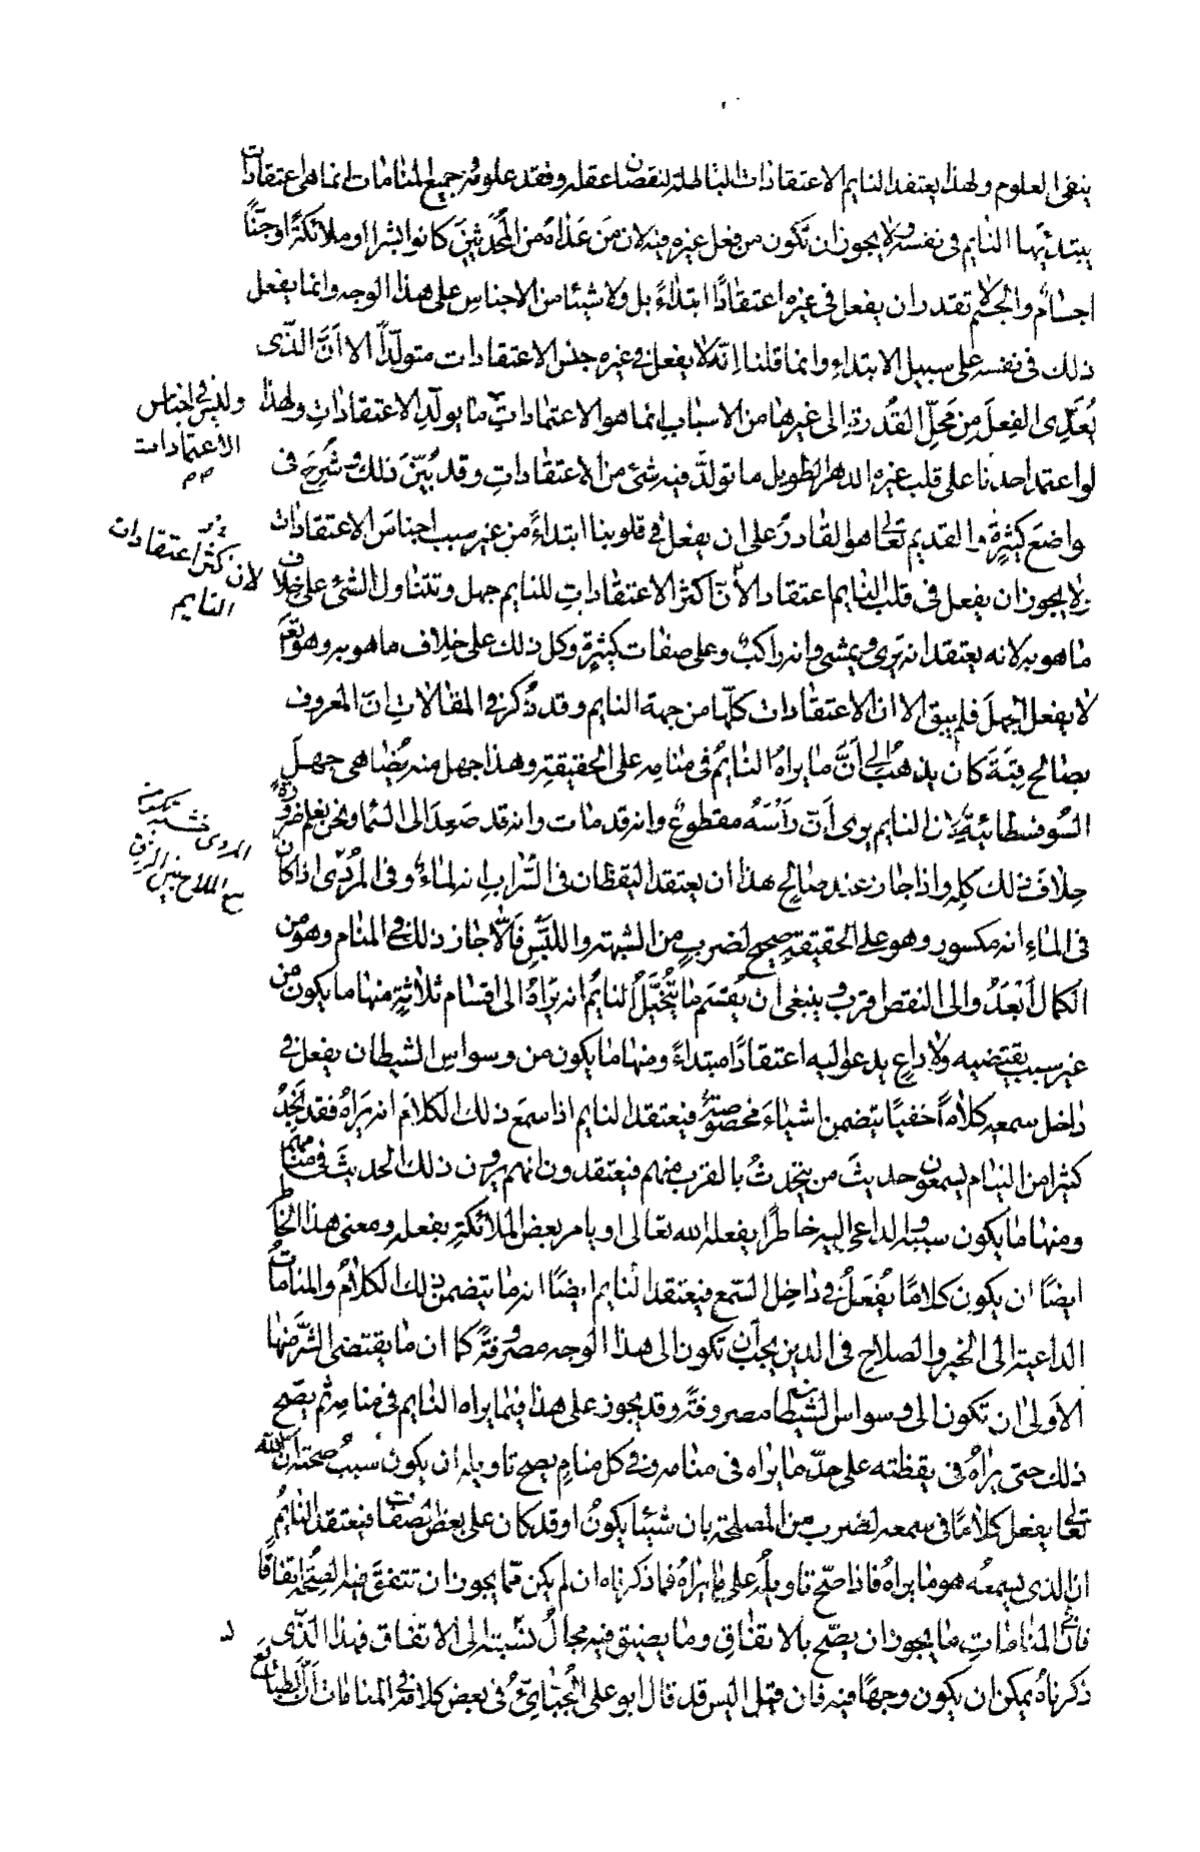 ينفى العلوم ولهذا يعتقد النايم الاعتقادات الباطلة لنقصان عقله وفقد علومه وجميع المنامات انما هى اعتقادات
يبتدئها النايم فى نفسه ولا يجوز ان تكون من فعل غيره فيه لان من عداه من المحدثين كانوا بشرا او ملائكة او جنّا
اجسام والجسم لا تقدر ان يفعل فى غيره اعتقادًا ابتداءً بل ولا شيئا من الاجناس على هذا الوجه وانما يفعل
ذلك فى نفسه على سبيل الابتداء وانما قلنا انه لا يفعل فى غيره جنس الاعتقادات متولّدًا الا انّ الذّى
يُعدِّى الفعل من محلّ القدرة الى غيرها من الاسباب انما هو الاعتمادات ما يولّد الاعتقادات ولهذا
وليس فى اجناس
الاعتمادات
لو اعتمد احدنا على قلب غيره الدهر الطويل ما تولّد فيه شئ من الاعتقادات وقد بُيّن ذلك وشُرح فى
واضع كثيرة والقديم تعالى هو القادر على ان يفعل فى قلوبنا ابتداءً من غير سبب اجناس الاعتقادات
ولا يجوز ان يفعل فى قلب النايم اعتقاد الانّ اكثر الاعتقادات للنايم جهل وتتناول الشئ على خلاف
لان اكثر اعتقادات
النايم
ما هو به لانه يعتقد انه يرى ويمشى وانه راكب وعلى صفات كثيرة وكل ذلك على خلاف ما هو به وهو تعالى
لا يفعل الجهل فلم يبق الا ان الاعتقادات كلّها من جهة النايم وقد ذُكر فى المقالات انّ المعروف
بصالح قبّة كان يذهب الى انّ ما يراه النايم فى منامه على الحقيقة وهذا جهل منه يُضاهى جهل
السوفسطائية لان النايم يرى انّ رأسه مقطوع وانه قد مات وانه قد صعد الى السّما ونحن نعلم ضرورةً
خلاف ذلك كله واذا جاز عند صالح هذا ان يعتقد اليقظان فى السّراب انه ماء وفى المُردّى اذا كان
المردى خشبة
فى الماء انه مكسور وهو على الحقيقة صحيح لضرب من الشبهة واللبس فألّا جاز ذلك فى المنام وهو من
الكمال ابعد والى النقص اقرب وينبغى ان يُقسَم ما يتخيّل النايم انه يراه الى اقسام ثلاثة منها ما يكون من
غير سبب يقتضيه ولا داع يدعو اليه اعتقادًا مبتداءً ومنها ما يكون من وسواس الشيطان يفعل فى
داخل سمعه كلامًا خفيًا يتضمن اشياء مخصوصة فيعتقد النايم اذا سمع ذلك الكلام انه يراه فقد نجد
كثيرا من النيام يسمعون حديث من يتحدث بالقرب منهم فيعتقدون انهم يرون ذلك الحديث فى منامهم
ومنها ما يكون سببه والداعى اليه خاطرًا يفعله الله تعالى او يامر بعض الملائكة بفعله ومعنى هذا الخاطر
ايضًا ان يكون كلامًا يُفعل فى داخل السّمع فيعتقد النايم ايضًا انه ما يتضمن ذلك الكلام والمنامات
الداعية الى الخير والصلاح فى الدين يجب ان تكون الى هذا الوجه مصروفة كما ان ما يقتضى الشّر منها
الاولى ان تكون الى وسواس الشيطان مصروفة وقد يجوز على هذا فيما يراه النايم فى منامه ثم يصّح
ذلك حتى يراه فى يقظته على حدّ ما يراه فى منامه وفى كل منام يصح تاويله ان يكون سبب صحته ان الله
تعالى يفعل كلامًا فى سمعه لضرب من المصلحة بان شيئا يكون او قد كان على بعض الصفات فيعتقد النايم
ان الذى يسمعه هو ما يراه فاذا صحّ تاويله على ما يراه فما ذكرناه ان لم يكن ممّا يجوز ان تتفق فيه الصحة اتفاقًا
فانّ فى المنامات ما يجوز ان يصّح بالاتفاق وما يضيق فيه مجال نسبته الى الاتفاق فهذا الذّى
ذكرناه يمكن ان يكون وجهًا فيه فان قيل اليس قد قال ابو على الجُبّائىّ فى بعض كلامه فى المنامات انّ الطبائع